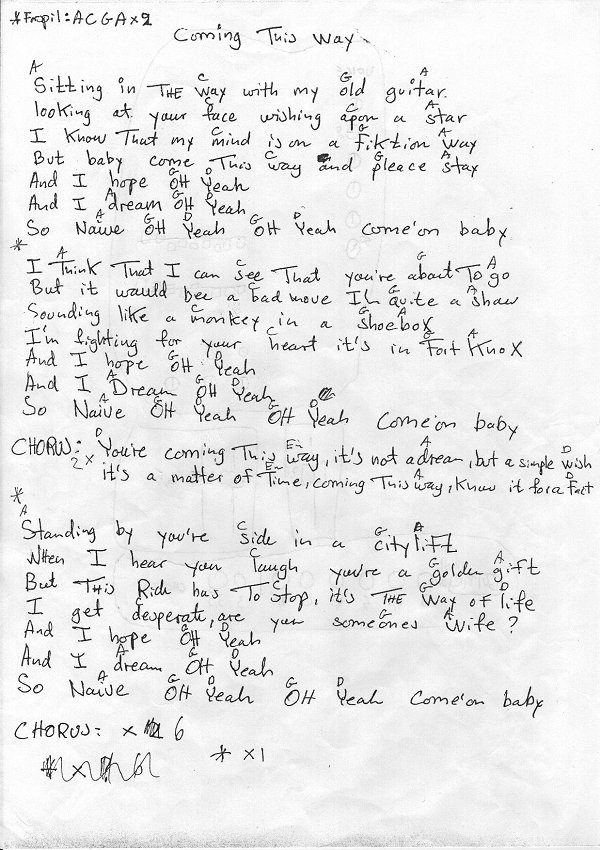 *Fropil: A C G A x2
Coming This Way
A C G A
Sitting in THE Way with my old guitar.
C C A
looking at your face wishing apon a star
C G A
I Know That my mind is on a fiktion way
C G A
But baby come This way and pleace stay
G D
And I hope OH Yeah
A G D
And I dream OH Yeah
A G D G D
So Naive OH Yeah OH Yeah come'on baby
*
A C G A
I Think That I can see That you're about To go
C G A
But it would bee a bad move I'm quite a shaw
C G A
Sounding like a monkey in a shoebox
C G A
I'm fighting for your heart it's in Fort Knox
G D
And I hope OH Yeah
A G D
And I Dream OH Yeah
A G D G D
So Naive OH Yeah OH Yeah Come'on baby
D Em A D
CHORUS: You're coming This way, it's not a dream, but a simple wish
Em A D
2x it's a matter of Time, coming This way, Know it for a Fact
*
A C G A
Standing by you're side in a city lift
C G A
WHen I hear you laugh you're a golden gift
C G D
But THis Ride has To Stop, it's THE Way of life
C G A
I get desperate, are you someones Wife?
G D
And I hope OH Yeah
A G D
And I dream OH Yeah
A G D G D
So Naive OH Yeah OH Yeah Come'on baby
CHORUS: x 6
* x1